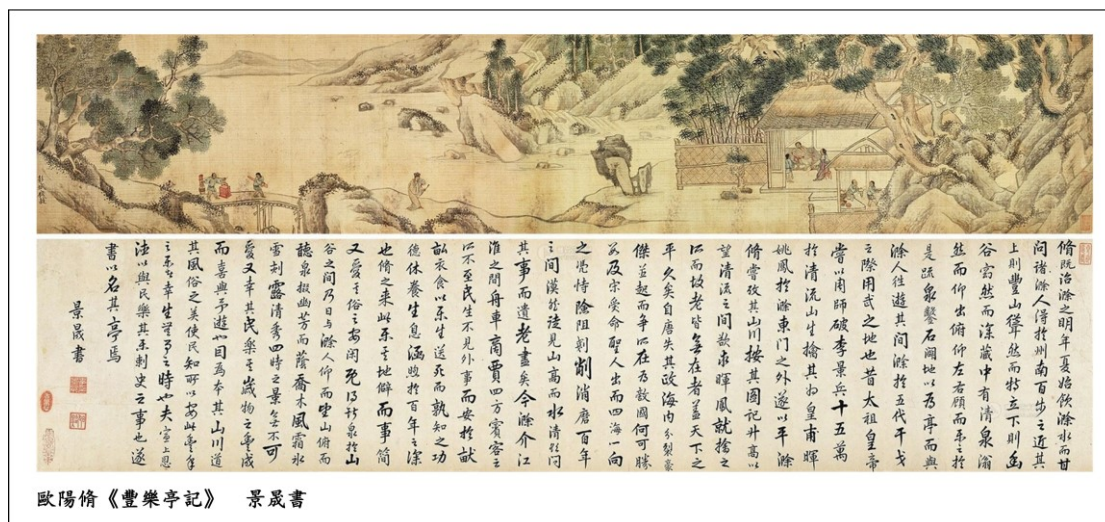 脩既治滁之明年夏始飲滁水而甘
問諸滁人得於州南百步之近其
上則豐山聳然而特立下則幽
谷窈然而深藏中有清泉滃
然而仰出俯仰左右顧而樂之於
是疏泉鑿石闢地以為亭而與
滁人往遊其間滁於五代干戈
之際用武之地也昔太祖皇帝
嘗以周師破李景兵十五萬
於清流山生擒其將皇甫暉
姚鳳於滁東門之外遂以平滁
脩嘗攷其山川按其圖記升高以
望清流之間欲求暉鳳就擒之
所而故老皆無在者蓋天下之
平久矣自唐失其政海內分裂豪
傑並起而爭所在為敵國何可勝
數及宋受命聖人出而四海一向
之憑恃險阻剗削消磨百年
之間漠然徒見山高而水清欲問
其事而遺老盡矣今滁介江
淮之間舟車商賈四方賓客之
所不至民生不見外事而安於畎
畝衣食以樂生送死而孰知之功
德休養生息涵煦於百年之深
也脩之来此樂其地僻而事簡
又愛其俗之安閑既得斯泉於山
谷之間乃日与滁人仰而望山俯而
聽泉掇幽芳而蔭喬木風霜冰
雪刻露清秀四時之景無不可
愛又幸其民樂其歲物之豐成
而喜與予遊也因為本其山川道
其風俗之美使民知所以安此豐年
之樂者幸生無事之時也夫宣上恩
德以與民樂其樂刺史之事也遂
書以名其亭焉
景晟書
歐陽脩《豐樂亭記》 景晟書